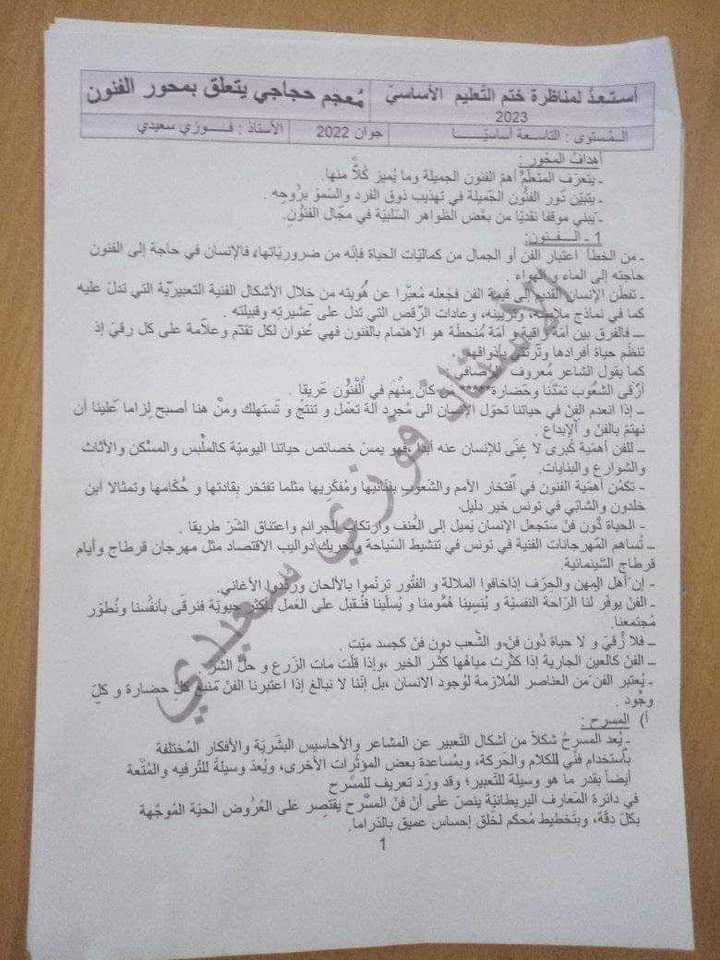 أستعدّ لمناظرة ختم التّعليم الأساسيّ
2023
مُعجم حجاجي يتعلق بمحور الفنون
المُستوى : التاسعة أساسيّـــا
جوان 2022
الأستاذ : فـــوزي سعيدي
أهدافُ المحْور :
ـ يتعرّف المتعلّمُ أهمّ الفنون الجميلة وما يُميز كُلاًّ منها.
ـ يتبيّن دّور الفنُون الجّميلة في تهذيب ذوق الفرد والسّموّ برُوحِه .
ـ يَبني موقفا نقديّا من بعْض الظواهر السّلبيّة في مجَال الفنُون.
1 - الـــفـــنون:
ـ من الخطأ اعتبار الفن أو الجمال من كماليّات الحياة فإنّه من ضروريّاتها، فالإنسان في حاجة إلى الفنون
حاجته إلى الماء و الهواء .
ـ تفطّن الإنسان القديم إلى قيمة الفن فجَعله مُعبّرا عن هُويته من خلال الأشكال الفنية التّعبيريّة التي تدلّ عليه
كما في نماذج ملابسه، وتزيينه، وعادات الرّقص التي تدل على عشيرته وقبيلته .
ــ فالفرق بين أمّة راقية و أمّة مُنحطّة هو الاهتمام بالفنون فهي عُنوان لكل تقدّم وعلامة على كل رقيّ إذ
تنظّم حياة أفرادها وتَرتقي بأذواقهم
كما يقول الشاعر مَعروف الرصافي
أرْقى الشُعوب تمَدّنا وحَضارة***** من كانَ منْهَم في الفُنُون عَريقا .
ــ إذا انعدم الفنّ في حياتنا تحوّل الإنسان الى مُجرد آلة تعْمل و تنتجُ و تَستهلك ومنْ هنا أصبح لِزاما علينا أن
نهتمّ بالفنّ و الإبداع .
ــ للفن أهميّة كُبرى لا غِنَى للإنسان عنه أبدا ،فهو يمسّ خصائص حياتنا اليوميّة كالملْبس والمسْكن والأثاث
والشوارع والبنايات.
- تكمُن أهمّية الفنون في افتخار الأمم والشّعوب بفنّانيها ومُفكّريها مثلما تفتخر بقادتها و حُكّامها وتمثالا ابن
خلدون والشّابي في تونس خير دليل.
- الحياة دُون فنّ ستجعل الإنسان يَميل إلى العُنف وارتكاب الجرائم واعتناق الشّرّ طريقا .
ــ تُساهم المّهرجانات الفنية في تونس في تنشيط السّياحة وتحريك دواليب الاقتصاد مثل مهرجان قرطاج وأيام
قرطاج السّينمائية.
- إن أهل المِهن والحِرَف إذاخافوا الملالة و الفتُور ترنّموا بالألحان وردّدوا الأغاني.
- الفنّ يوفّر لنا الرّاحة النفسيّة و يُنسِينا هُمُومنا و يُسلّينا فنُقبل على العَمل بأكثر حيويّة فنرقّى بأنفُسنا ونُطوّر
مُجتمعنا.
ــ فلا رُقيّ و لا حياة دُون فنّ،و الشّعب دون فنّ كجسد ميّت .
ــ الفنّ كالعين الجارية إذا كثُرت مياهُها كثُر الخير ،وإذا قلّت مَات الزّرع و حلّ الشّرّ
ـ يُعتبر الفن من العناصر المُلازمة لوُجود الانسان ،بل إنّنا لا نبالغ إذا اعتبرنا الفنّ منبع كلّ حضارة و كلّ
وجُود .
أ) المسرح :
ـ يُعد المسرحُ شكلاً من أشكال التّعبير عن المشاعر والأحاسيس البشريّة والأفكار المُختلفة
باستخدام فنّي للكلام والحَركة، وبمُساعدة بعض المؤثّرات الأخرى، ويُعدّ وسيلةً للتّرفيه والمُتْعة
أيضاً بقدر ما هو وسيلة للتّعبير؛ وقد ورّد تعريف للمسْرح
في دائرة المَعارف البريطانيّة ينصّ على أنّ فنّ المسْرح يقتصِر عَلى العُروض الحيّة المُوجّهة
بكلّ دقّة، وبتخطيط مُحكم لخَلق إحساس عميق بالدّراما.
1
الأستاذ فوزي سعيدي